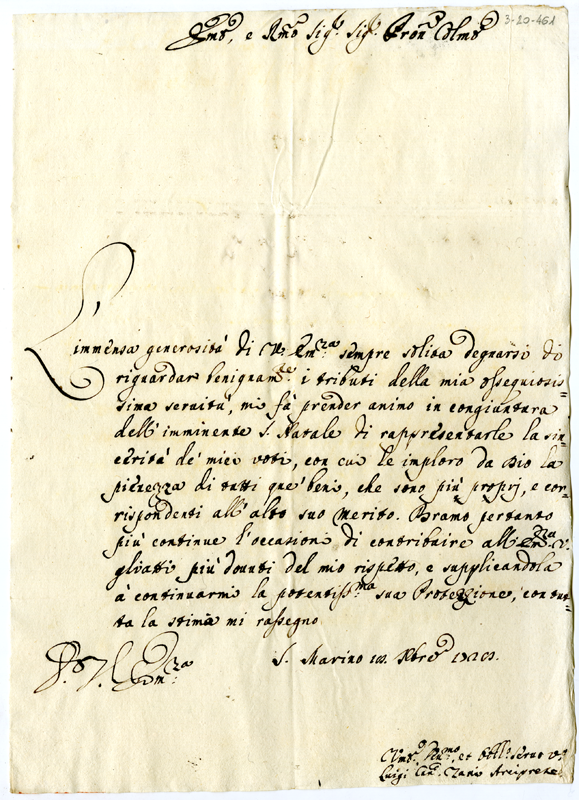 3-20-461
Emo, e Rmo Sigr. Sigr. Pron Colmo
L'immensa generosità di V. Emza sempre solita degnarsi di
riguardar benignamte i tributi della mia ossequiosis=
sima servitù, mi fà prender animo in congiuntura
dell'imminente S. Natale di rappresentarle la sin=
cerità de' miei voti, con cui le imploro da Dio la
pienezza di tutti que' beni, che sono più proprj, e cor=
rispondenti all'alto suo merito. Bramo pertanto
più continue l'occasioni di contribuire all' Emza V.
gl'iatti più dovuti del mio rispetto, e supplicandola
à continuarmi la potentissma sua Protezzione, con tut=
ta la stima mi rassegno
D. V. Emza
S. Marino Xbre
Umo Dmo, et Obllo Servo vo
Luigi Arciprete